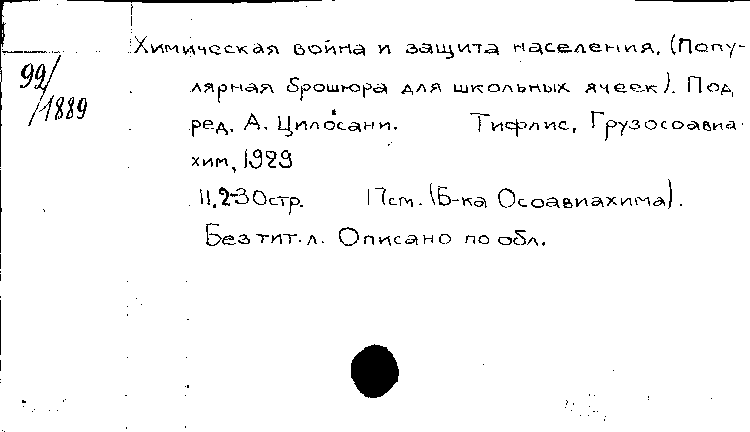 Химическая война и защита населения. (Попу-
99/1889
лярная брошюра для школьных ячеек). Под
ред. А. Цилосани. Тифлис, Грузосоавиа-
хим, 1929
11.2-30стр. 17см. (Б-ка Осоавиахима).
Без тит. л. Описано по обл.